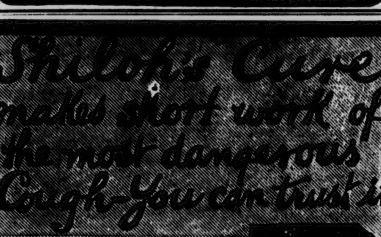 Shiloh's Cure
makes short work of
the most dangerous
Cough–You can trust it